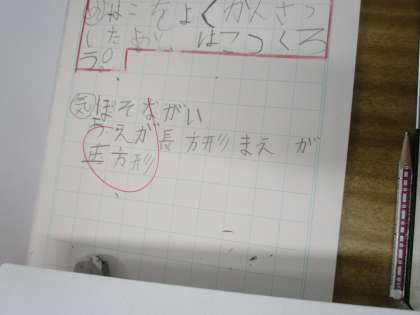 はこをよくかんさつ
した はこつくろ
う。
気 ほそながい
うえが長方形まえが
正方形